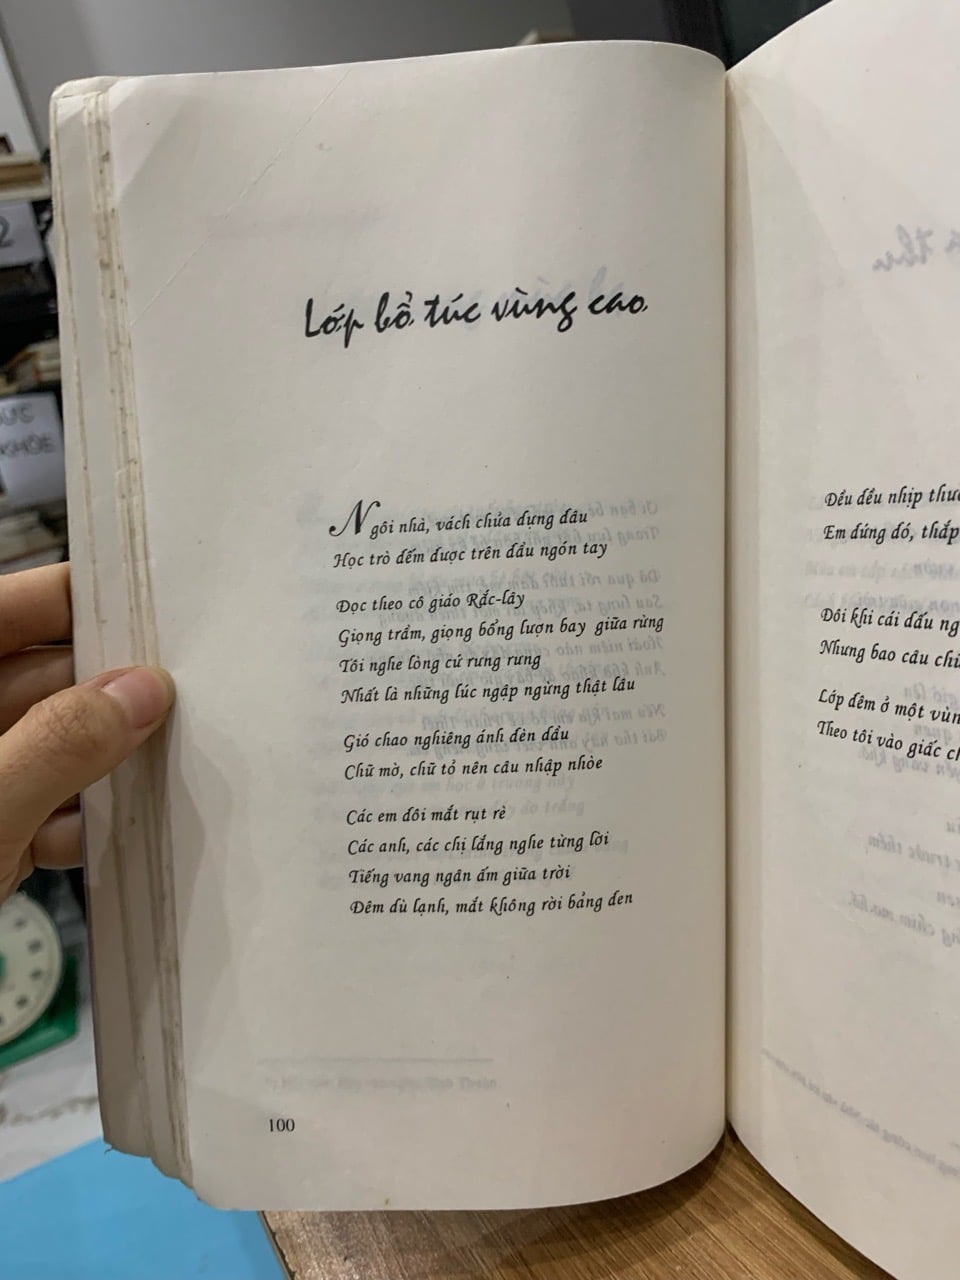 Lớp bổ túc vùng cao
Ngôi nhà, vách chửa dựng đâu
Học trò đếm được trên đầu ngón tay
Đọc theo cô giáo Rắc-lây
Giọng trầm, giọng bổng lượn bay giữa rừng
Tôi nghe lòng cứ rưng rưng
Nhất là những lúc ngập ngừng thật lâu
Gió chao nghiêng ánh đèn dầu
Chữ mờ, chữ tỏ nên câu nhập nhòe
Các em đôi mắt rụt rè
Các anh, các chị lắng nghe từng lời
Tiếng vang ngân ấm giữa trời
Đêm dù lạnh, mắt không rời bảng đen
100
Đều đều nhịp
Em đứng đó, thắp
Đôi khi cái dấu
Nhưng bao câu
Lớp đêm ở một
Theo tôi vào giấc
2
KHỎE